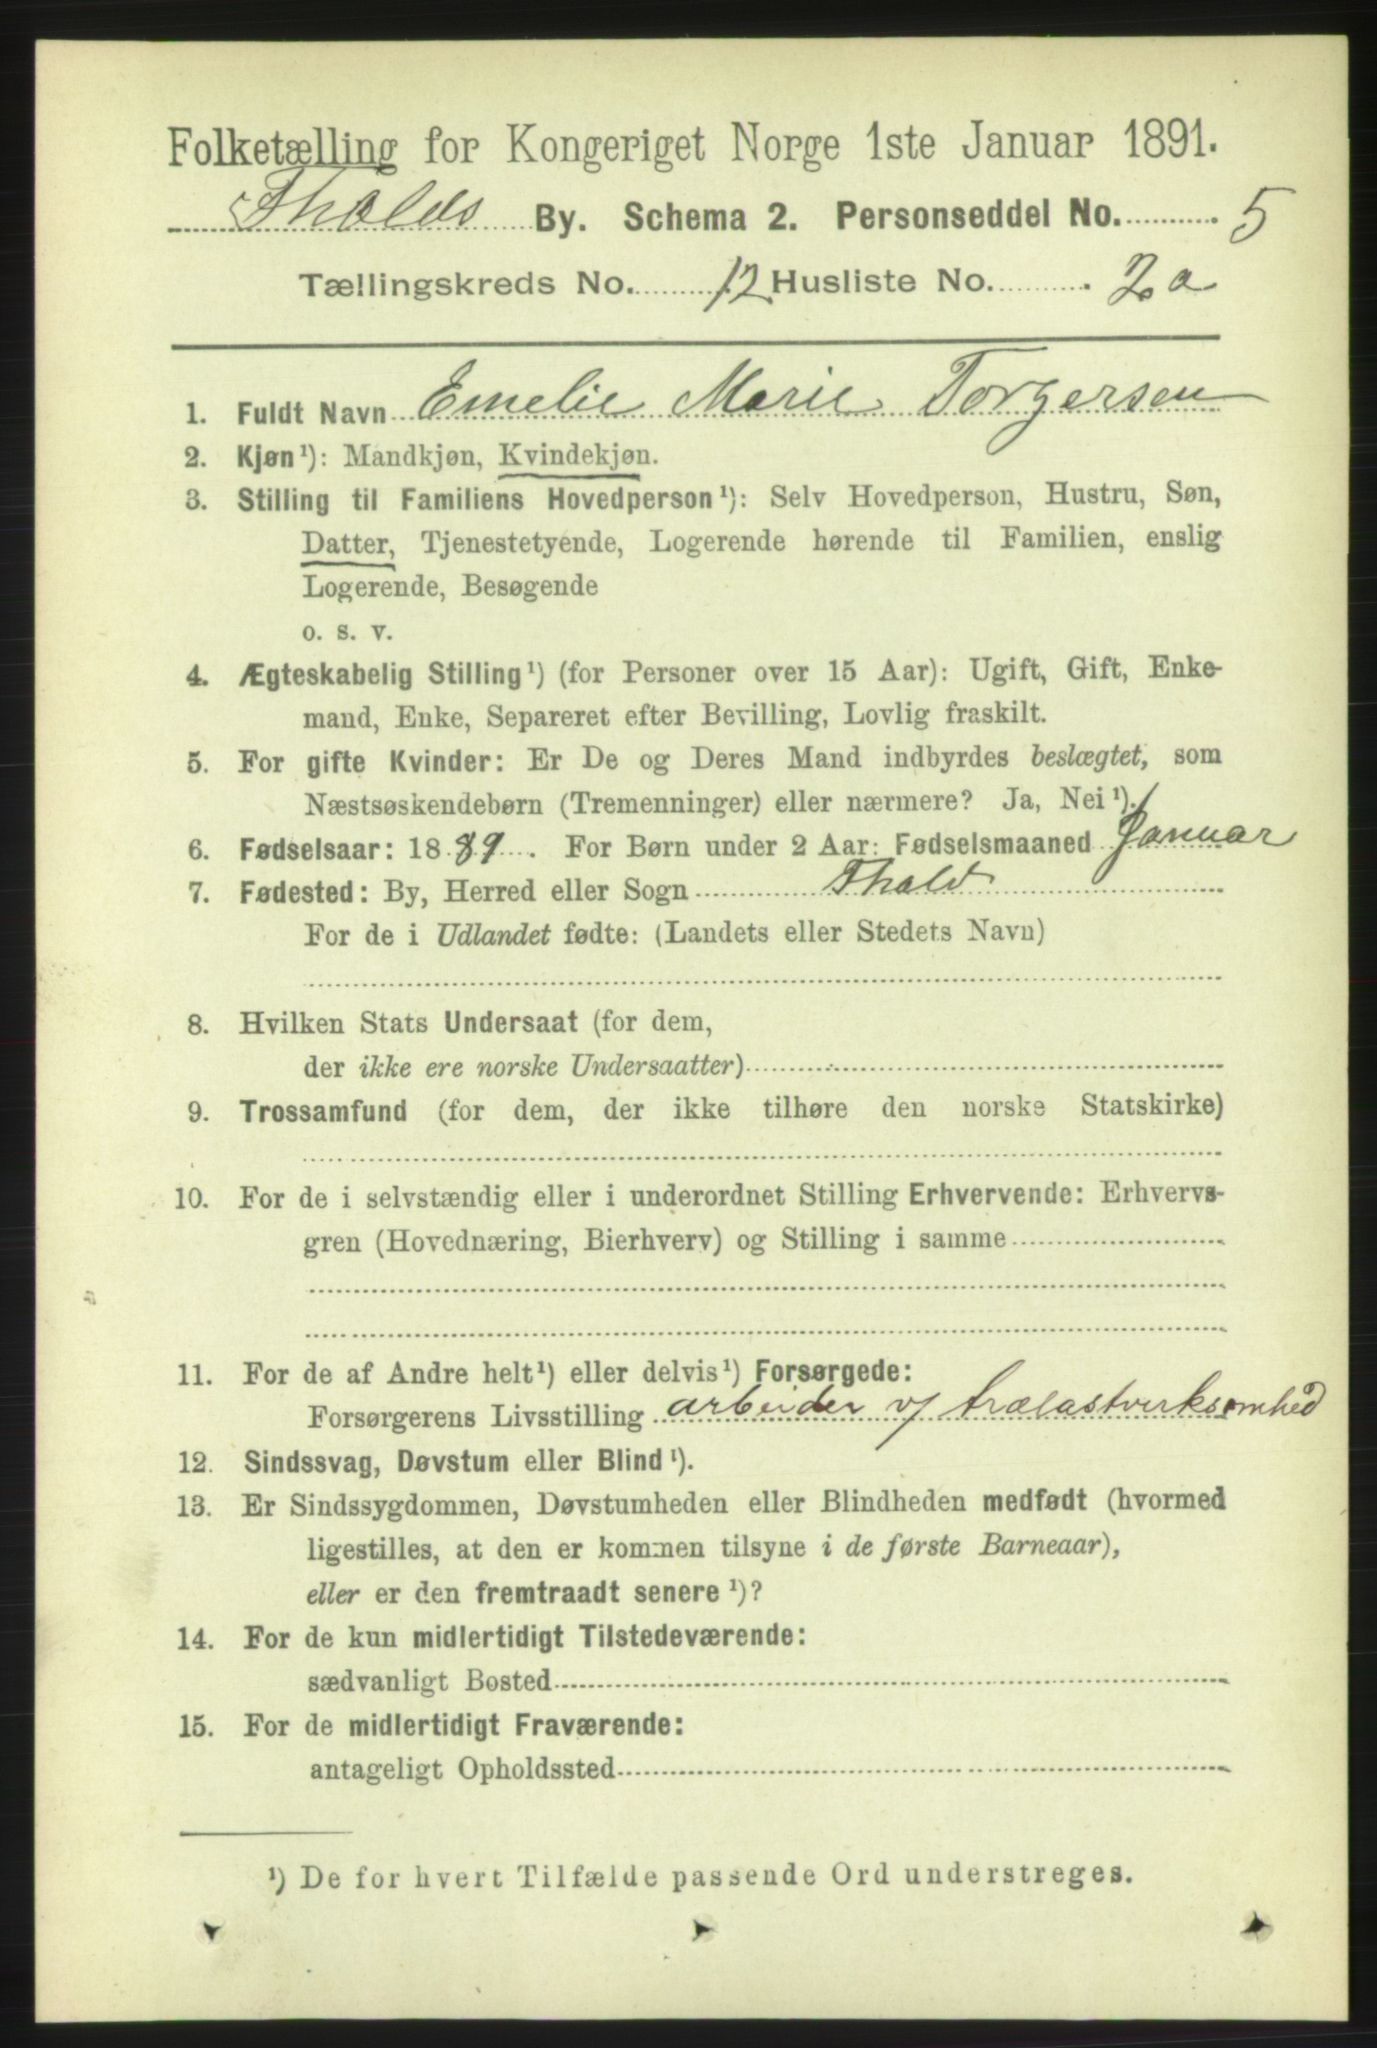 Folketælling for Kongeriget Norge 1ste Januar 1891.
Fhalds By. Schema 2. Personseddel No. 5
Tællingskreds No. 12 Husliste No. 2a
1. Fuldt Navn Emelie Marie Torgersen
2. Kjøn¹): Mandkjøn, Kvindekjøn.
3. Stilling til Familiens Hovedperson¹): Selv Hovedperson, Hustru, Søn,
Datter, Tjenestetyende, Logerende hørende til Familien, enslig
Logerende, Besøgende
o. s. v.
4. Ægteskabelig Stilling¹) (for Personer over 15 Aar): Ugift, Gift, Enke-
mand, Enke, Separeret efter Bevilling, Lovlig fraskilt.
5. For gifte Kvinder: Er De og Deres Mand indbyrdes beslægtet, som
Næstsøskendebørn (Tremenninger) eller nærmere? Ja, Nei¹).
6. Fødselsaar: 1889. For Børn under 2 Aar: Fødselsmaaned Januar
7. Fødested: By, Herred eller Sogn Fhald
For de i Udlandet fødte: (Landets eller Stedets Navn)
8. Hvilken Stats Undersaat (for dem,
der ikke ere norske Undersaatter)
9. Trossamfund (for dem, der ikke tilhøre den norske Statskirke)
10. For de i selvstændig eller i underordnet Stilling Erhvervende: Erhvervs-
gren (Hovednæring, Bierhverv) og Stilling i samme
11. For de af Andre helt¹) eller delvis¹) Forsørgede:
Forsørgerens Livsstilling arbeider v/ trælastvirksomhed
12. Sindssvag, Døvstum eller Blind¹).
13. Er Sindssygdommen, Døvstumheden eller Blindheden medfødt (hvormed
ligestilles, at den er kommen tilsyne i de første Barneaar),
eller er den fremtraadt senere¹)?
14. For de kun midlertidigt Tilstedeværende:
sædvanligt Bosted
15. For de midlertidigt Fraværende:
antageligt Opholdssted
¹) De for hvert Tilfælde passende Ord understreges.